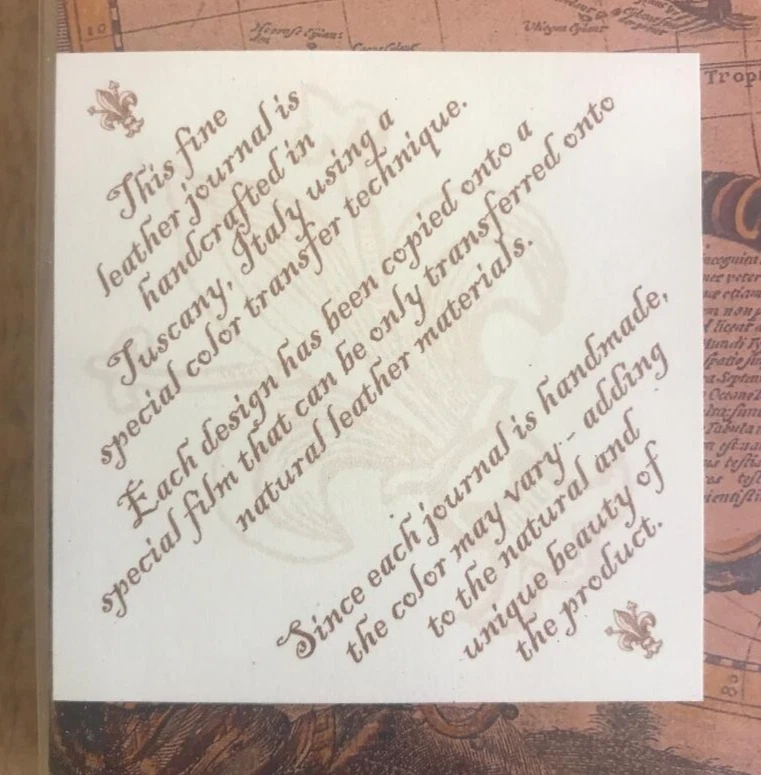 This fine
leather journal is
handcrafted in
Tuscany, Italy using a
special color transfer technique.
Each design has been copied onto a
special film that can be only transferred onto
natural leather materials.
Since each journal is handmade,
the color may vary- adding
to the natural and
unique beauty of
the product.
10
Trop
80